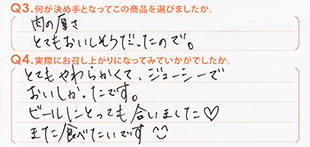 Q3.何が決め手となってこの商品を選びましたか。
肉の厚さ
とてもおいしそうだったので。
Q4.実際にお召し上がりになってみていかがでしたか。
とてもやわらかくて、ジューシーで
おいしかったです。
ビールにとっても合いました♡
また食べたいです